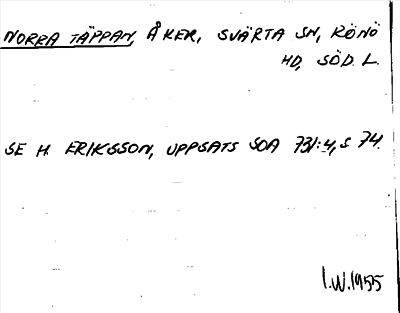 NORRA TÄPPAN, ÅKER, SVÄRTA SN, RÖNÖ
HD, SÖD. L.
SE H. ERIKSSON, UPPSATS SOA 731:4, S 74.
I.W. 1955